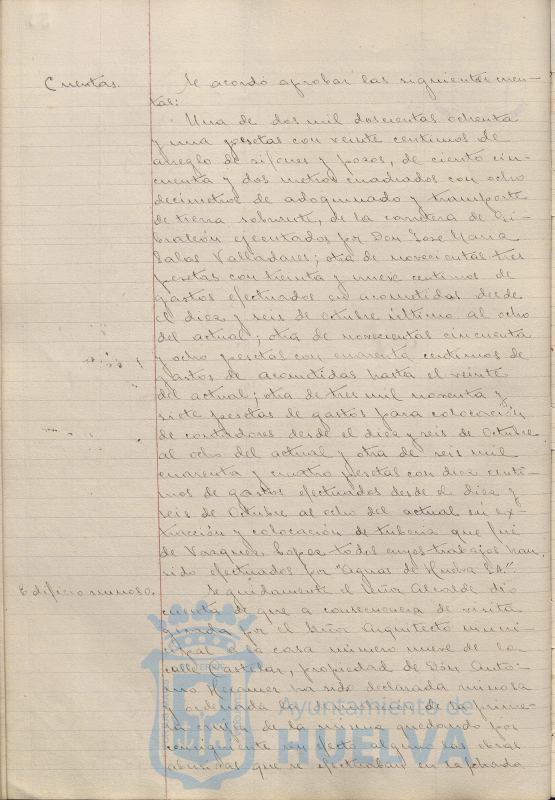 Cuentas. Se acordó aprobar las siguientes cuen-
tas:
Una de dos mil doscientas ochenta
y una pesetas con veinte centimos de
arreglo de sifones y pozos, de ciento cin-
cuenta y dos metros cuadrados con ocho
decimetros de adoquinado y transporte
de tierra sobrante, de la carretera de Gi-
braleón ejecutados por Don Jose Maria
Salas Valladares; otra de novecientas tres
pesetas con treinta y nueve centimos de
gastos efectuados en acometidas desde
el diez y seis de Octubre último al ocho
del actual; otra de novecientas cincuenta
y ocho pesetas con cuarenta centimos de
gastos de acometidas hasta el veinte
del actual; otra de tres mil noventa y
siete pesetas de gastos para colocación
de contadores desde el diez y seis de Octubre
al ocho del actual y otra de seis mil
cuarenta y cuatro pesetas con diez centi-
mos de gastos efectuados desde el diez y
seis de Octubre al ocho del actual en ex-
tracción y colocación de tuberia que fué
de Vazquez Lopez todos cuyos trabajos han
sido efectuados por "Aguas de Huelva S.A."
Edificio ruinoso. Seguidamente el Señor Alcalde dió
cuenta de que a consecuencia de visita
girada por el Señor Arquitecto muni-
cipal a la casa número nueve de la
calle Castelar, propiedad de Don Anto-
nio ha sido declarada ruinosa
y ordenada la de la prime-
ra de la misma quedando por
consiguiente sin efecto alguno las obras
abusivas que se efectuaban en la fachada
Ayuntamiento de
HUELVA